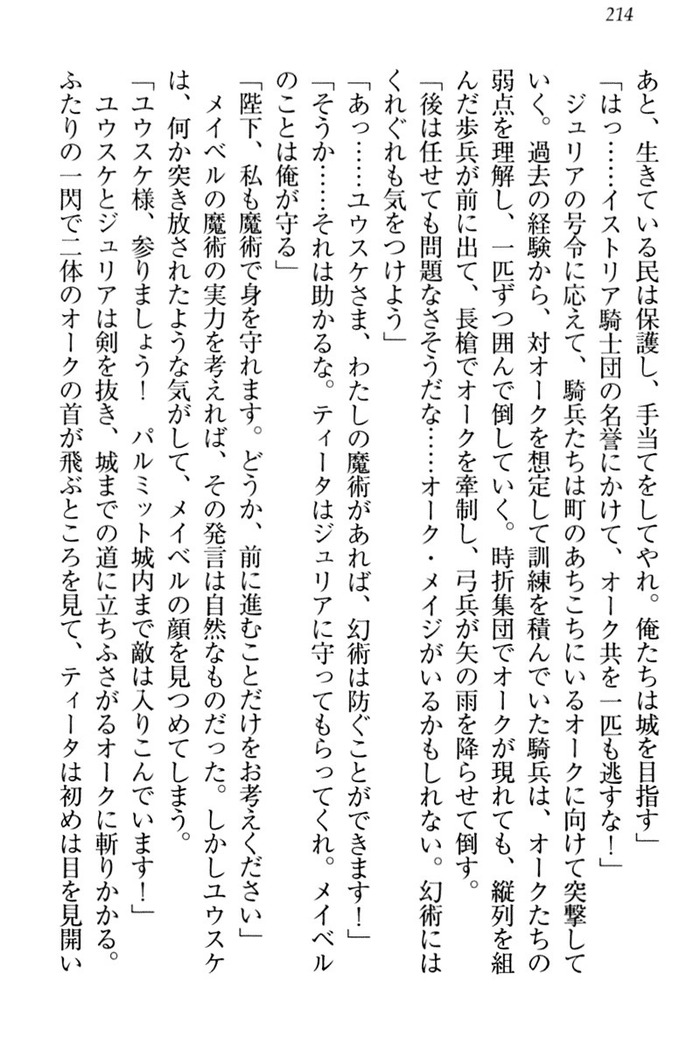 214
あと、生きている民は保護し、手当てをしてやれ。俺たちは城を目指す」
「はっ……イストリア騎士団の名誉にかけて、オーク共を一匹も逃すな！」
　ジュリアの号令に応えて、騎兵たちは町のあちこちにいるオークに向けて突撃して
いく。過去の経験から、対オークを想定して訓練を積んでいた騎兵は、オークたちの
弱点を理解し、一匹ずつ囲んで倒していく。時折集団でオークが現れても、縦列を組
んだ歩兵が前に出て、長槍でオークを牽制し、弓兵が矢の雨を降らせて倒す。
「後は任せても問題なさそうだな……オーク・メイジがいるかもしれない。幻術には
くれぐれも気をつけよう」
「あっ……ユウスケさま、わたしの魔術があれば、幻術は防ぐことができます！」
「そうか……それは助かるな。ティータはジュリアに守ってもらってくれ。メイベル
のことは俺が守る」
「陛下、私も魔術で身を守れます。どうか、前に進むことだけをお考えください」
　メイベルの魔術の実力を考えれば、その発言は自然なものだった。しかしユウスケ
は、何か突き放されたような気がして、メイベルの顔を見つめてしまう。
「ユウスケ様、参りましょう！　パルミット城内まで敵は入りこんでいます！」
　ユウスケとジュリアは剣を抜き、城までの道に立ちふさがるオークに斬りかかる。
ふたりの一閃で二体のオークの首が飛ぶところを見て、ティータは初めは目を見開い